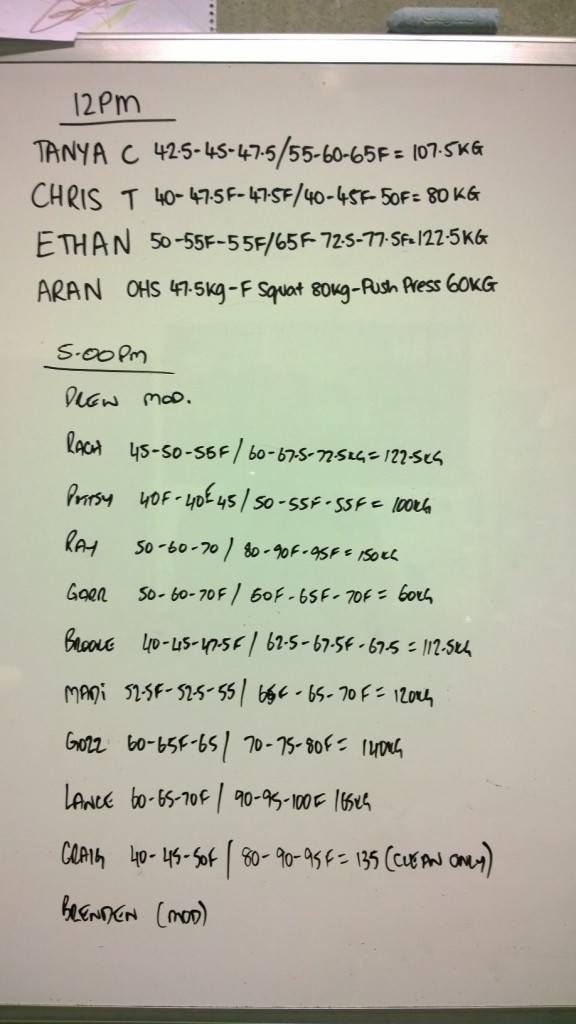 12PM
TANYA C 42.5-45-47.5/55-60-65F = 107.5KG
CHRIS T 40-47.5F-47.5F/40-45F-50F= 80KG
ETHAN 50-55F-55F/65F-72.5-77.5F=122.5KG
ARAN OHS 47.5kg-F Squat 80kg-Push Press 60KG
5.00PM
DREW MOD.
RACH 45-50-55F/60-67.5-72.5KG=122.5KG
40F-40F-45/50-55F-55F= 100KG
RAY 50-60-70/80-90F-95F=150KG
50-60-70F/60F-65F-70F= 60KG
BROOKE 40-45-47.5F/62.5-67.5F-67.5=112.5KG
MADi 52.5F-52.5-55/ -65-70F=120KG
GOZZ 60-65F-65/70-75-80F= 140KG
LANCE 60-65-70F/90-95-100F 165KG
CRAIG 40-45-50F/80-90-95F=135(CLEAN ONLY)
BRENDEN (MOD)